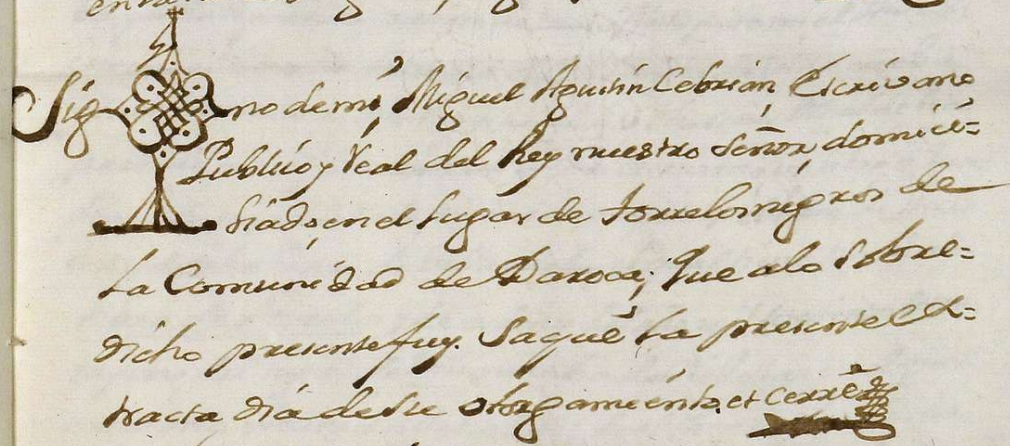 Sig no de mi, Miguel Agustin Cebrian, Escrivano
Publico y Real del Rey nuestro Señor, domici=
liado en el Lugar de Torrelosnigros de
la Comunidad de Daroca; que a lo sobre=
dicho presente fuy. Saquè la presente ex=
tracta dia de su otorgamiento, et cerrè